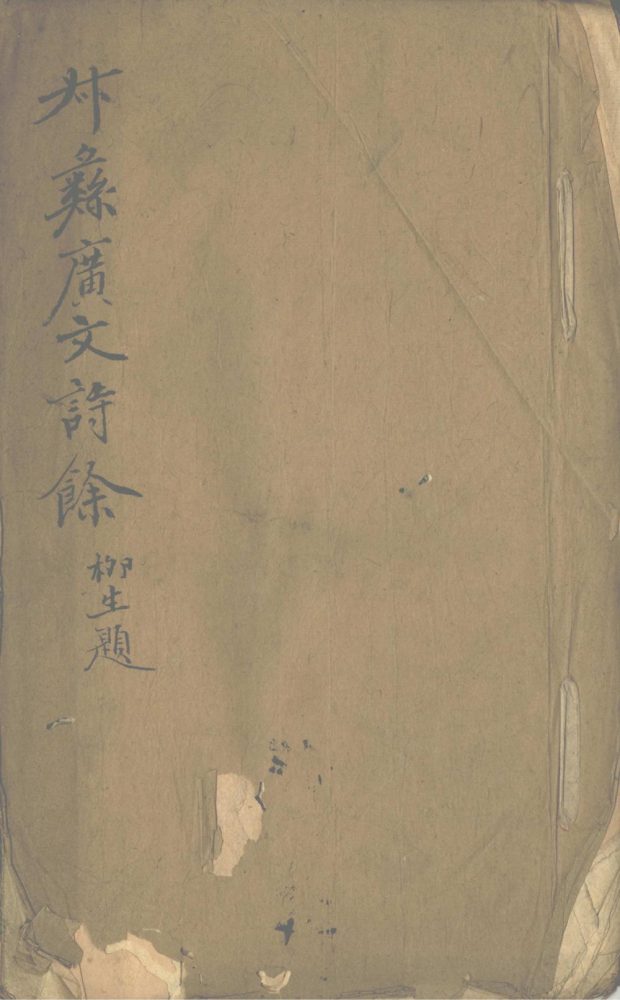 叔彝廣文詩餘
柳生題